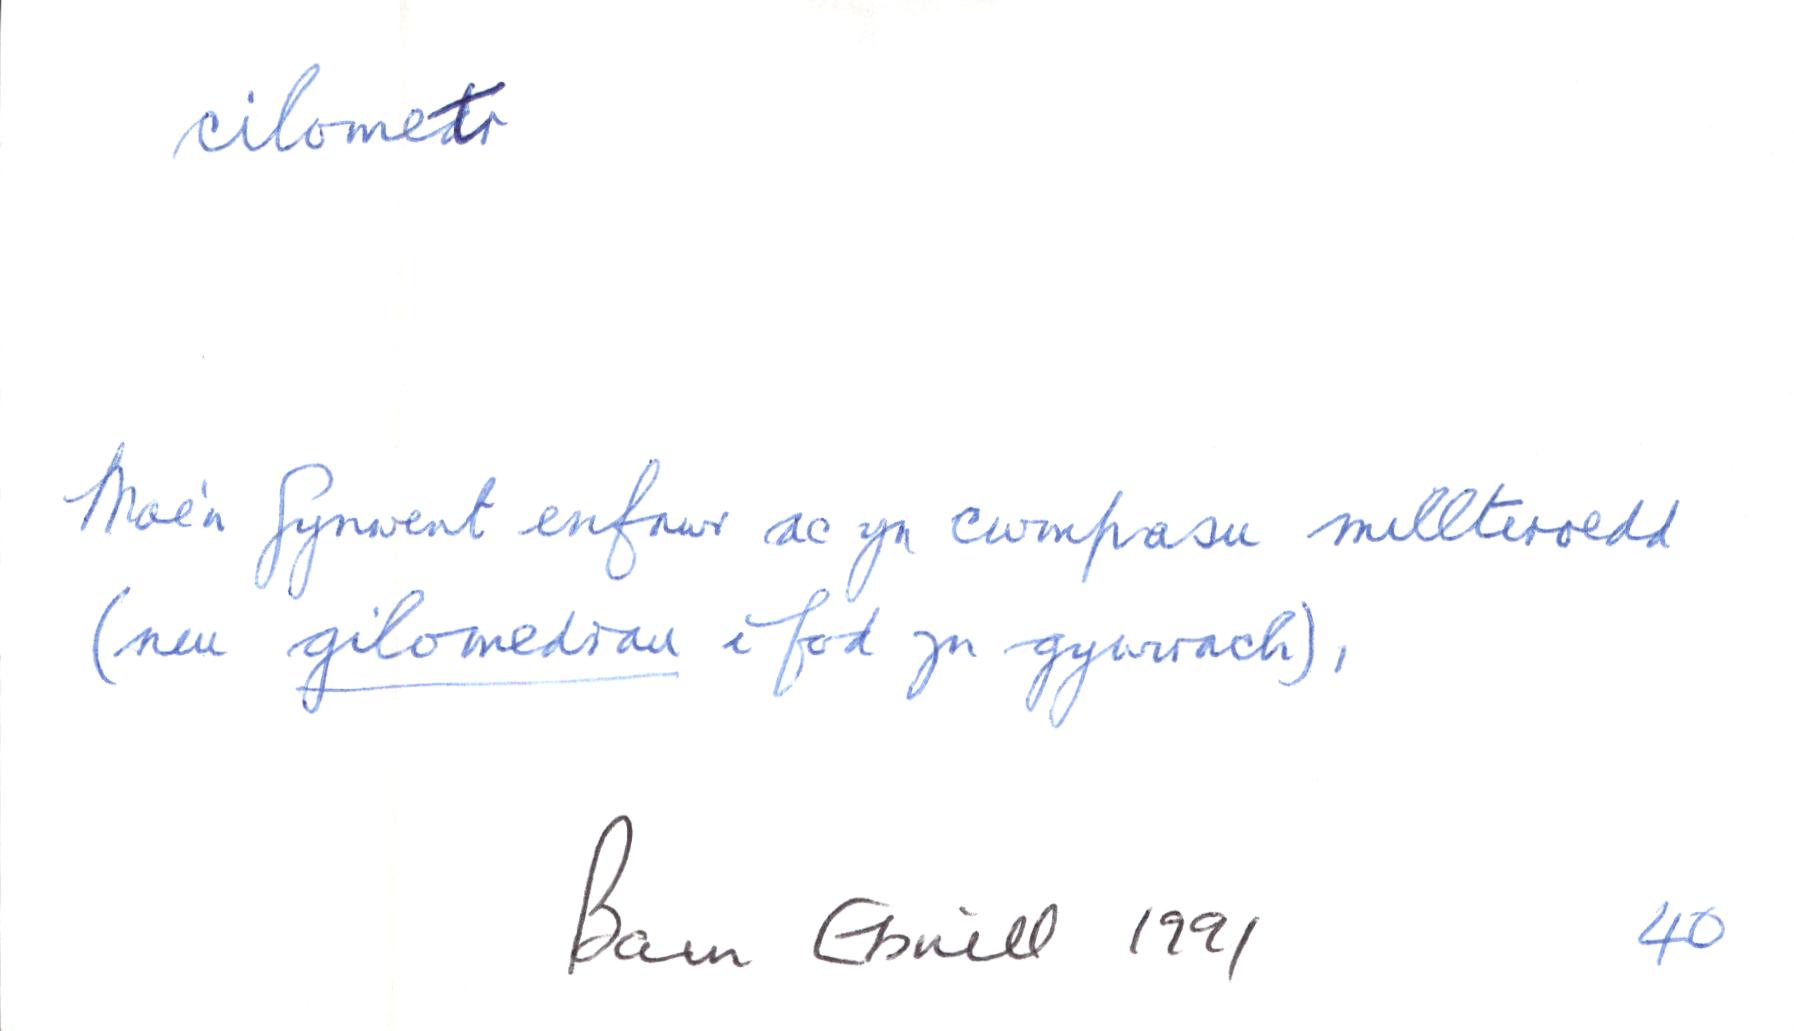 cilometr
Mae'n fynwent enfawr ac yn cwmpasu milltiroedd
(neu gilomedrau i fod yn gywirach),
Barn Ebrill 1991 40